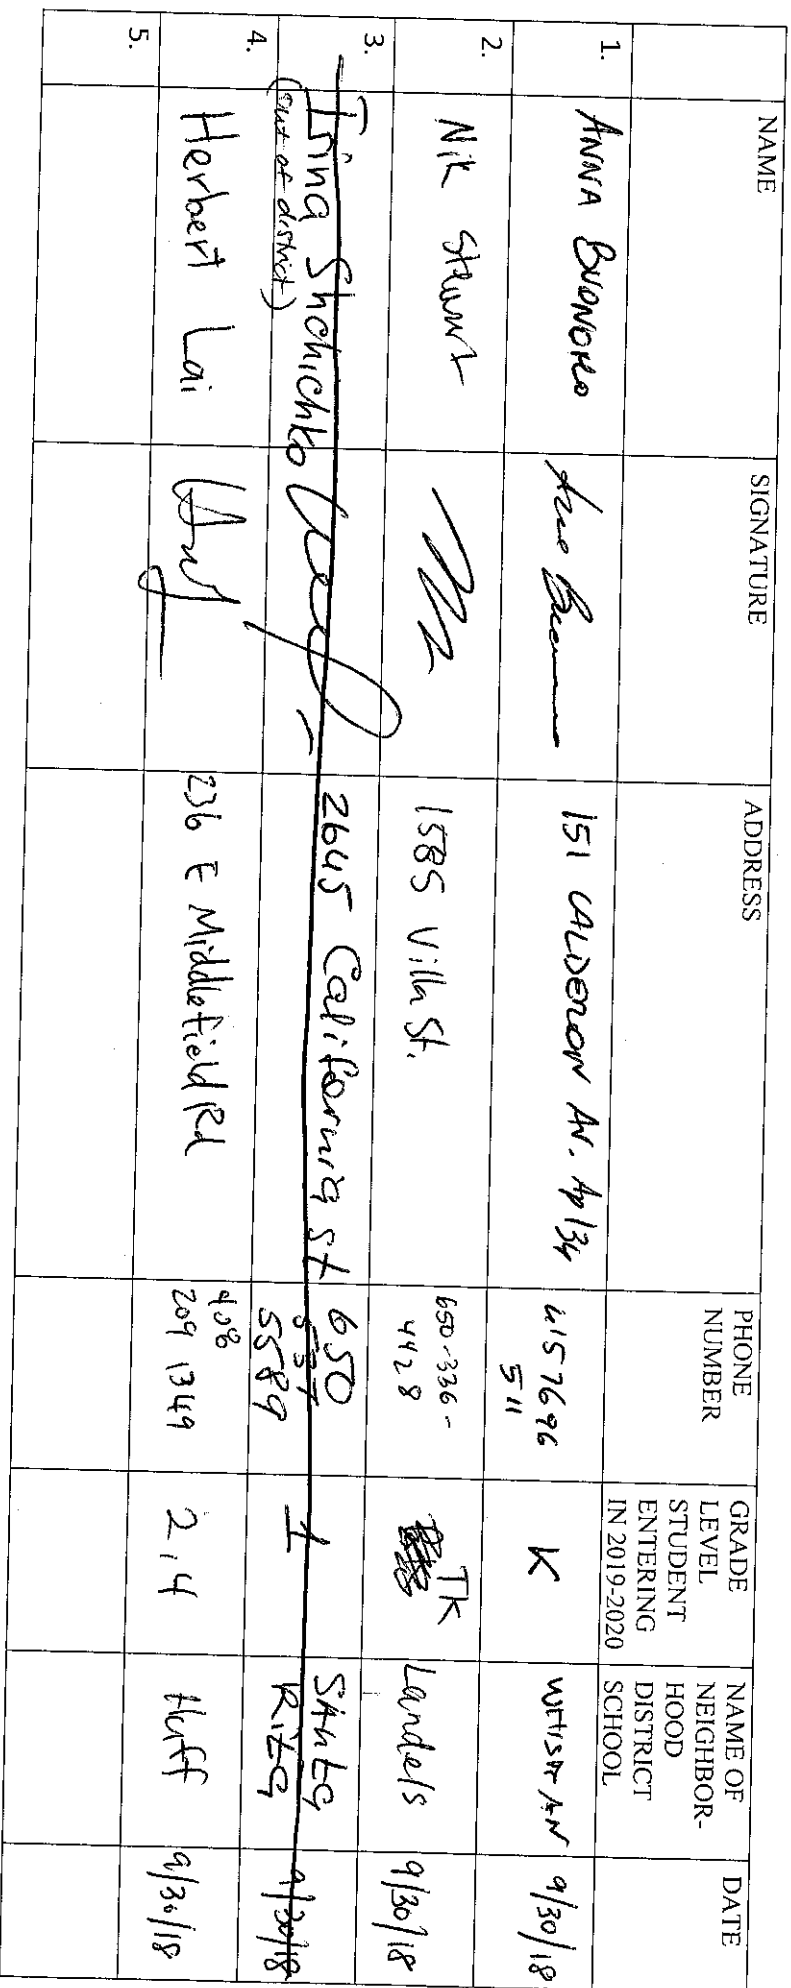 NAME SIGNATURE ADDRESS PHONE NUMBER GRADE LEVEL STUDENT ENTERING IN 2019-2020 NAME OF NEIGHBOR-HOOD DISTRICT SCHOOL DATE
1. ANNA BUONOMO 151 CALDERON AV. Ap 134 4157696 511 K WHISMAN 9/30/18
2. Nik Stewart 1585 Villa St. 650-336-4428 TK Landels 9/30/18
3. Irina Shchichko 2645 California st 650 537 5589 1 SAnta Rita 9/30/18
(out of district)
4. Herbert Lai 236 E Middlefield Rd 408 209 1349 2,4 Huff 9/30/18
5.